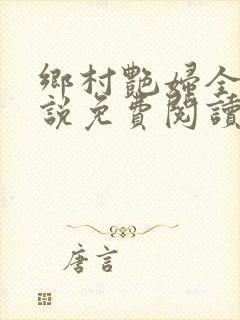 鄉村艷婦全
說免費閱讀
唐言